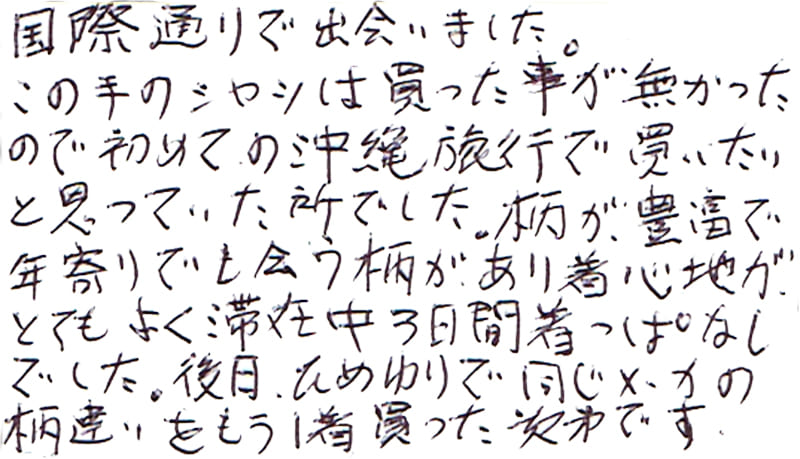 国際通りで出会いました。
この手のシャツは買った事が無かった
ので初めての沖縄旅行で買いたい
と思っていた所でした。柄が豊富で
年寄りでも会う柄があり着心地が
とてもよく滞在中3日間着っぱなし
でした。後日、ひめゆりで同じメーカの
柄違いをもう1着買った次第です。